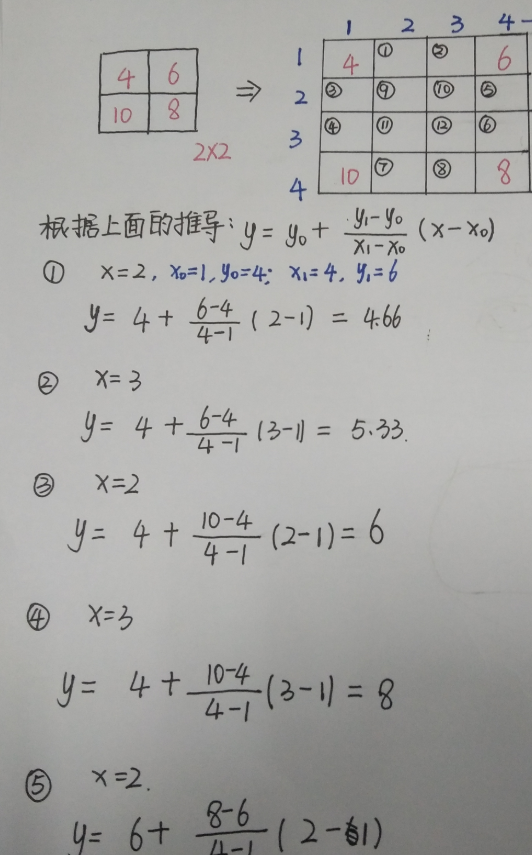 1 2 3 4
4 6 ⇒ 1 4 ① ② 6
10 8 2 ③ ⑨ ⑩ ⑤
2×2 3 ④ ⑪ ⑫ ⑥
4 10 ⑦ ⑧ 8
根据上面的推导: y = y₀ + (y₁-y₀)/(x₁-x₀) (x-x₀)
① x=2, x₀=1, y₀=4; x₁=4, y₁=6
y= 4 + (6-4)/(4-1) (2-1) = 4.66
② x=3
y= 4 + (6-4)/(4-1) (3-1) = 5.33.
③ x=2
y= 4 + (10-4)/(4-1) (2-1) = 6
④ x=3
y= 4 + (10-4)/(4-1) (3-1) = 8
⑤ x=2.
y= 6 + (8-6)/(4-1) (2-1)